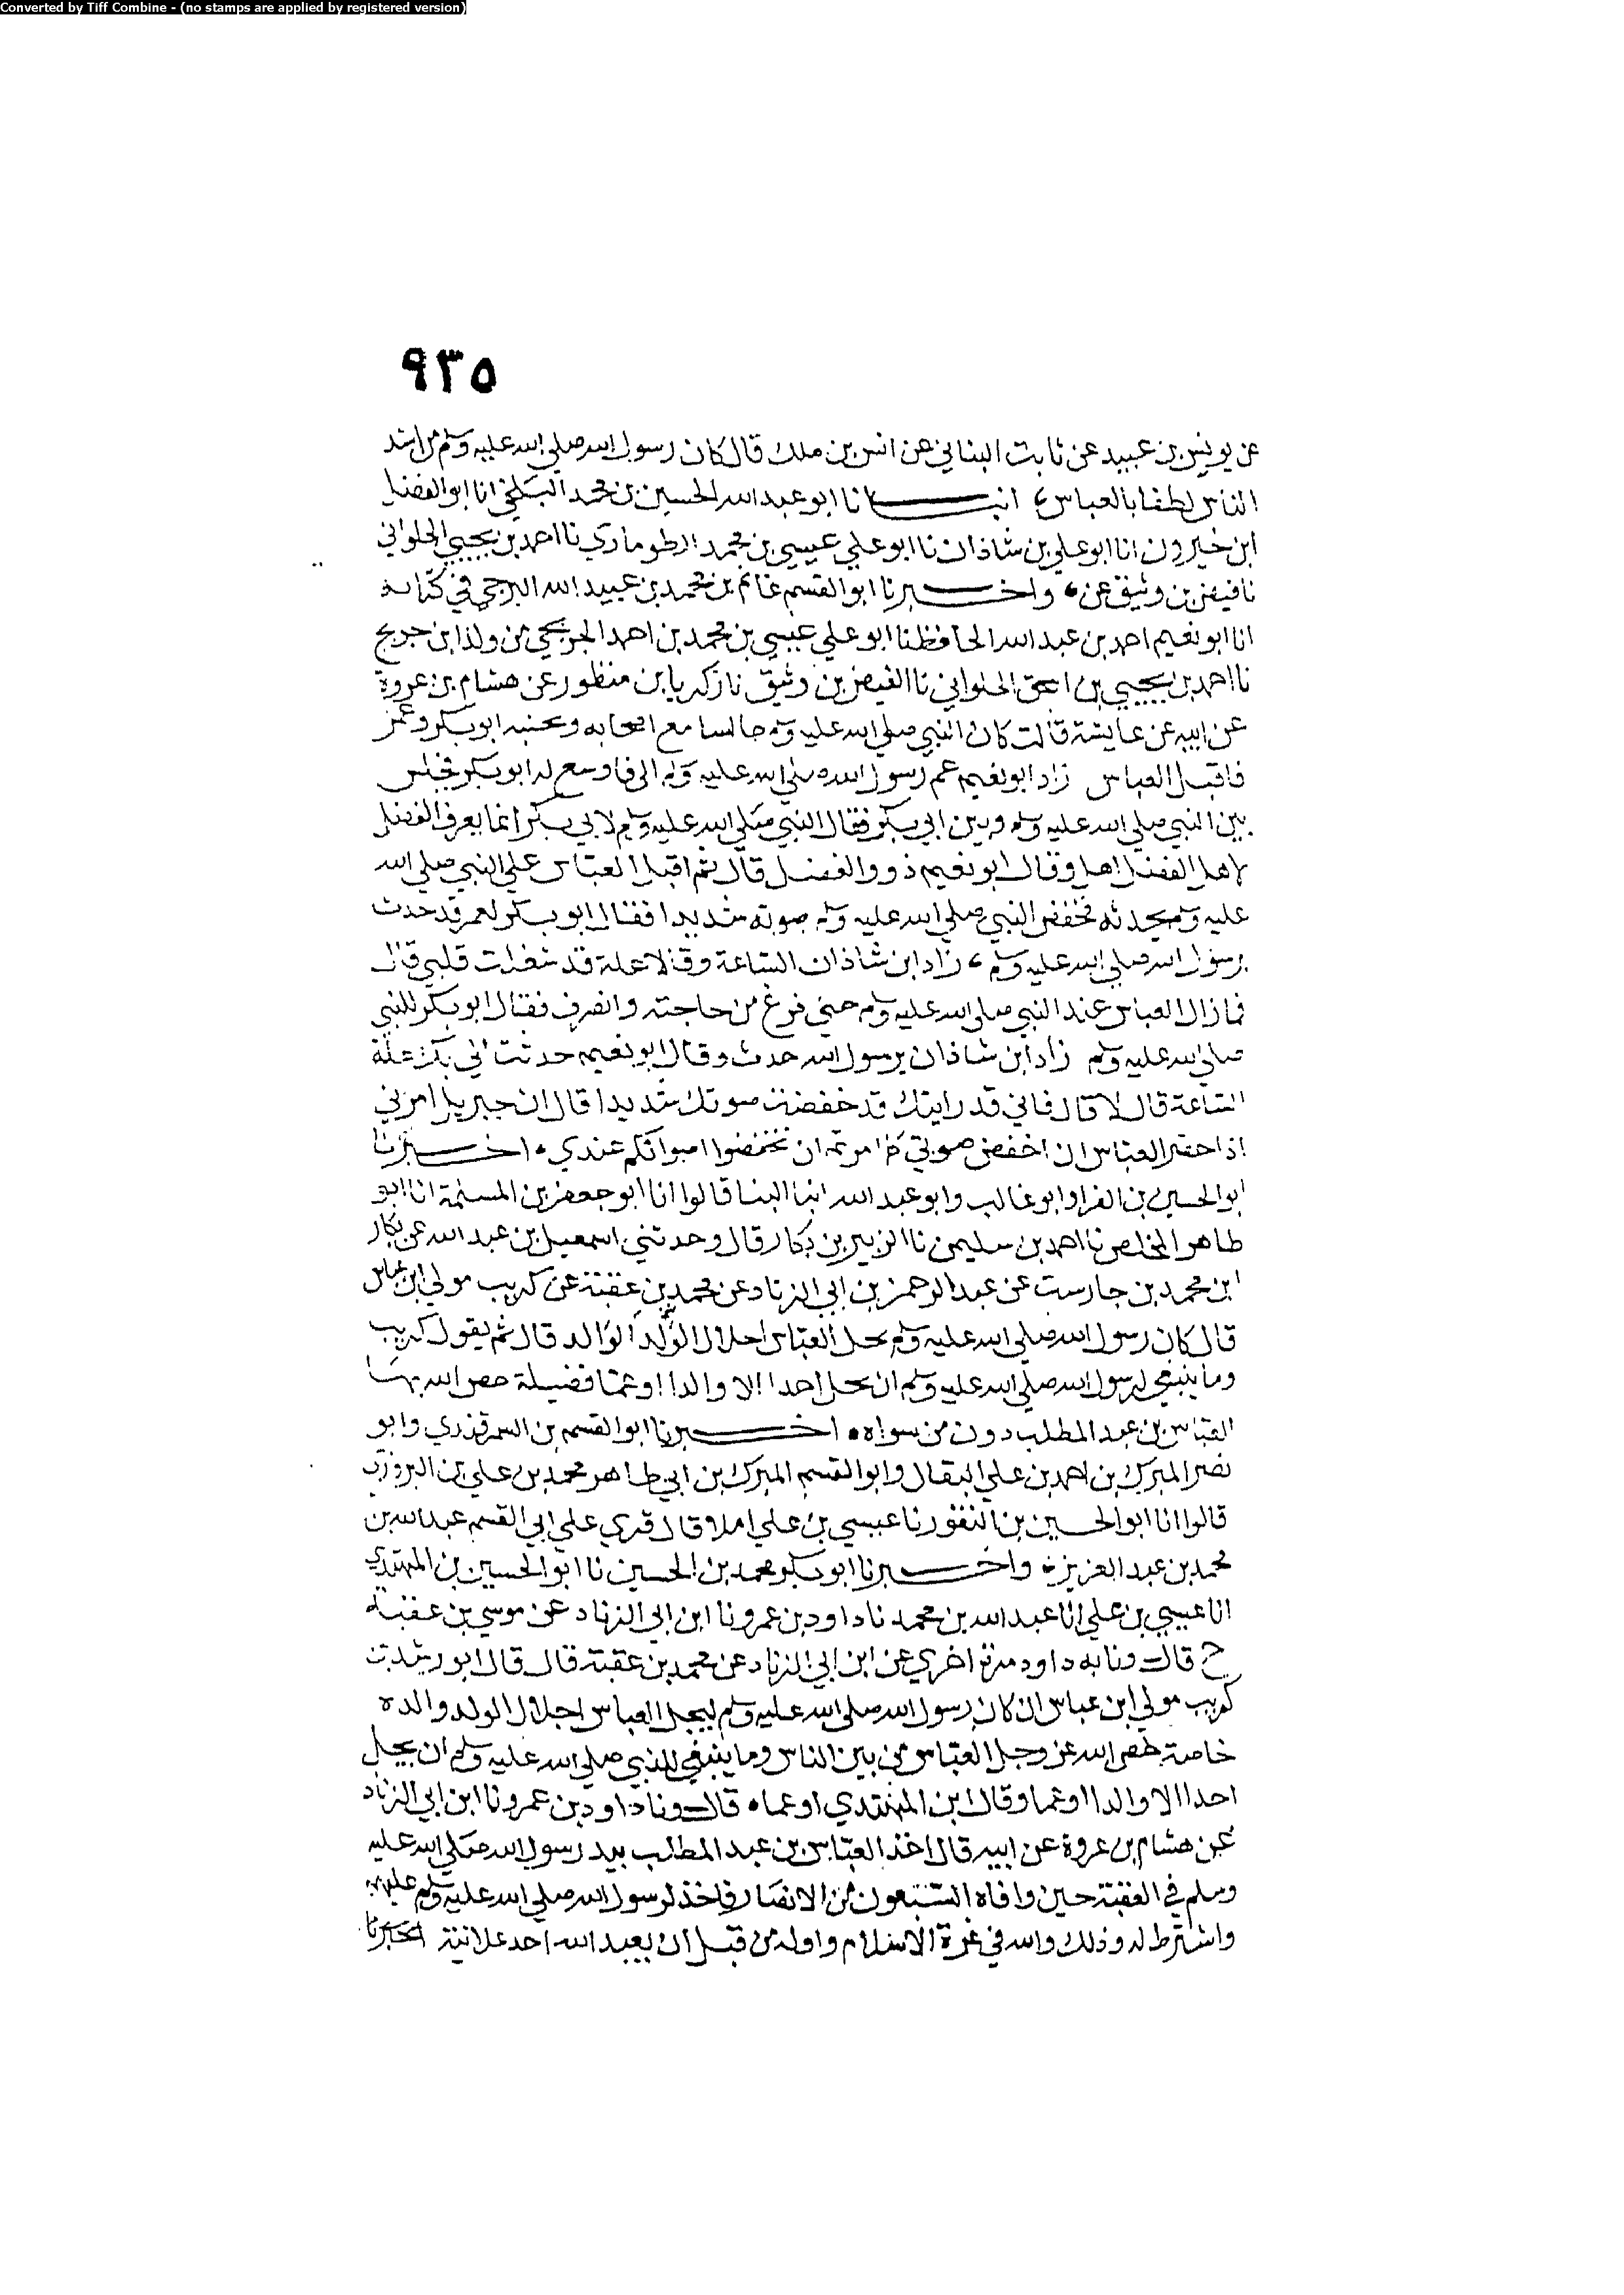 Converted by Tiff Combine - (no stamps are applied by registered version)
٩٣٥
عن يونس بن عبيد عن ثابت البناني عن انس بن ملك قال كان رسول الله صلي الله عليه وسلم من اشد
الناس لطفا بالعباس، انبـــانا ابو عبد الله الحسين بن محمد البلخي انا ابو الفضل
ابن خيرون انا ابو علي بن شاذان نا ابو علي عيسي بن محمد الطوماري نا احمد بن يحيي الحلواني
نا فيض بن وثيق عن، واخـــبرنا ابو القسم غانم بن محمد بن عبيد الله البرجي في كتابه
انا ابو نعيم احمد بن عبد الله الحافظ نا ابو علي عيسي بن محمد بن احمد الجريجي من ولد ابن جريج
نا احمد بن يحيي بن اسحق الحلواني نا الفيض بن وثيق نا زكريا بن منظور عن هشام بن عروة
عن ابيه عن عايشة قالت كان النبي صلي الله عليه وسلم جالسا مع اصحابه وبجنبه ابو بكر وعمر
فاقبل العباس زاد ابو نعيم عم رسول الله صلي الله عليه وسلم فاوسع له ابو بكر فجلس
بين النبي صلي الله عليه وسلم وبين ابي بكر فقال النبي صلي الله عليه وسلم لابي بكر انما يعرف الفضل
لاهل الفضل اهل وقال ابو نعيم ذوو الفضل قال ثم اقبل العباس علي النبي صلي الله
عليه وسلم يحدثه فخفض النبي صلي الله عليه وسلم صوته شديدا فقال ابو بكر لعمر قد حدث
برسول الله صلي الله عليه وسلم، زاد ابن شاذان الساعة وقالا علة قد شغلت قلبي قال
فما زال العباس عند النبي صلي الله عليه وسلم حتي فرغ من حاجته وانصرف فقال ابو بكر للنبي
صلي الله عليه وسلم زاد ابن شاذان يرسول الله حدث وقال ابو نعيم حدثت بك علة
الساعة قال لا قال فاني قد رايتك قد خفضت صوتك شديدا قال ان جبريل امرني
اذا حضر العباس ان اخفض صوتي كما امرتم ان تخفضوا اصواتكم عندي، اخـــبرنا
ابو الحسين بن الفرا وابو غالب وابو عبد الله ابنا البنا قالوا انا ابو جعفر بن المسلمة انا ابو
طاهر المخلص نا احمد بن سليمن نا الزبير بن بكار قال وحدثني اسمعيل بن عبد الله عن بكار
ابن محمد بن جارست عن عبد الرحمن بن ابي الزناد عن محمد بن عقبة عن كريب مولي ابن عباس
قال كان رسول الله صلي الله عليه وسلم يجل العباس اجلال الولد الوالد قال ثم يقول كريب
وما ينبغي لرسول الله صلي الله عليه وسلم ان يجل احدا الا والدا او عما فضيلة خص الله بها
العباس بن عبد المطلب دون من سواه، اخـــبرنا ابو القسم بن السمرقندي وابو
نصر المبرك بن احمد بن علي البقال وابو القسم المبرك بن ابي طاهر محمد بن علي بن البزوري
قالوا انا ابو الحسين بن النقور نا عيسي بن علي املا قال قري علي ابي القسم عبد الله بن
محمد بن عبد العزيز، واخـــبرنا ابو بكر محمد بن الحسين نا ابو الحسين بن المهتدي
انا عيسي بن علي انا عبد الله بن محمد نا داود بن عمرو نا ابن ابي الزناد عن موسي بن عقبة
ح قال ونا به داود مرة اخري عن ابن ابي الزناد عن محمد بن عقبة قال قال ابو رشدين
كريب مولي ابن عباس ان كان رسول الله صلي الله عليه وسلم ليجل العباس اجلال الولد والده
خاصة خص الله عز وجل العباس من بين الناس وما ينبغي للنبي صلي الله عليه وسلم ان يجل
احدا الا والدا او عما وقال ابن المهتدي او عما، قال ونا داود بن عمرو نا ابن ابي الزناد
عن هشام بن عروة عن ابيه قال اخذ العباس بن عبد المطلب بيد رسول الله صلي الله عليه
وسلم في العقبة حين وافاه السبعون من الانصار فاخذ لرسول الله صلي الله عليه وسلم عليهم
واشترط له وذلك والله في غرة الاسلام واوله من قبل ان يعبد الله احد علانية اخبرنا